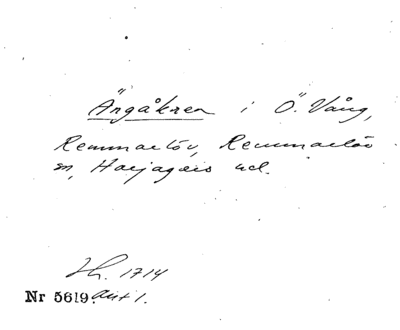 Ängåkren i Ö. Vång,
Remmarlöv, Remmarlöv
sn, Harjagers hd.
Lh. 1714
Nr 5619. akt 1.